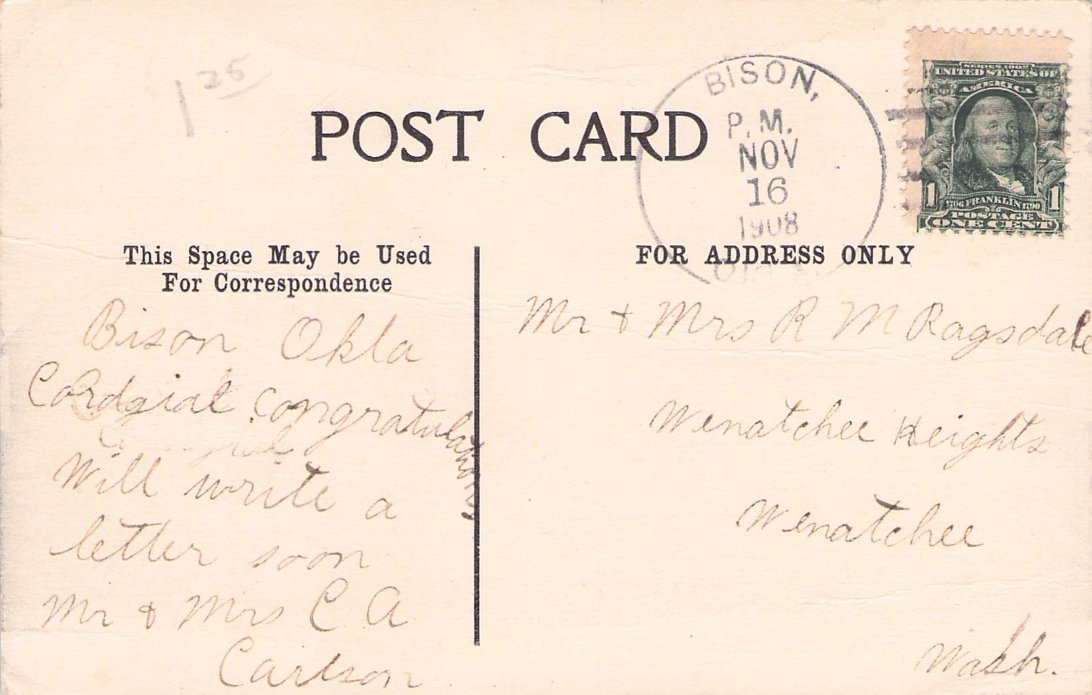 1 25
POST CARD
BISON,
P.M.
NOV
16
1908
OKLA.
SERIES 1902
UNITED STATES OF
AMERICA
1 1706 FRANKLIN 1790 1
POSTAGE
ONE CENT
This Space May be Used
For Correspondence
Bison Okla
Cordgial congratulations
Will write a
letter soon
Mr & Mrs C A
Carlson
FOR ADDRESS ONLY
Mr + Mrs R M Ragsdale
Wenatchee Heights
Wenatchee
Wash.